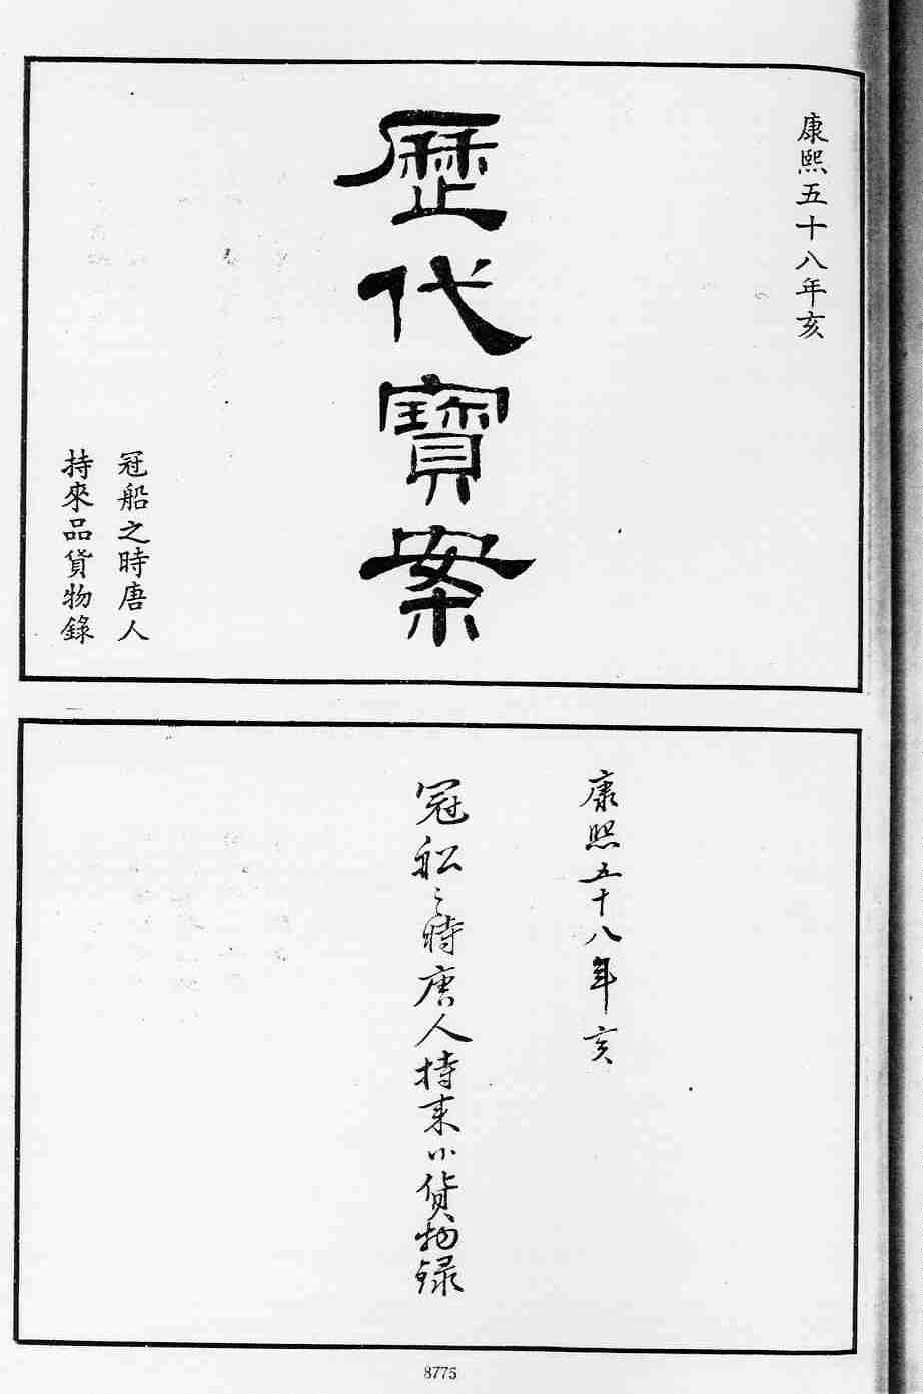 康熙五十八年亥
歷代寶案
冠船之時唐人
持來品貨物錄
康熙五十八年亥
冠船之時唐人持来小貨物録
8775